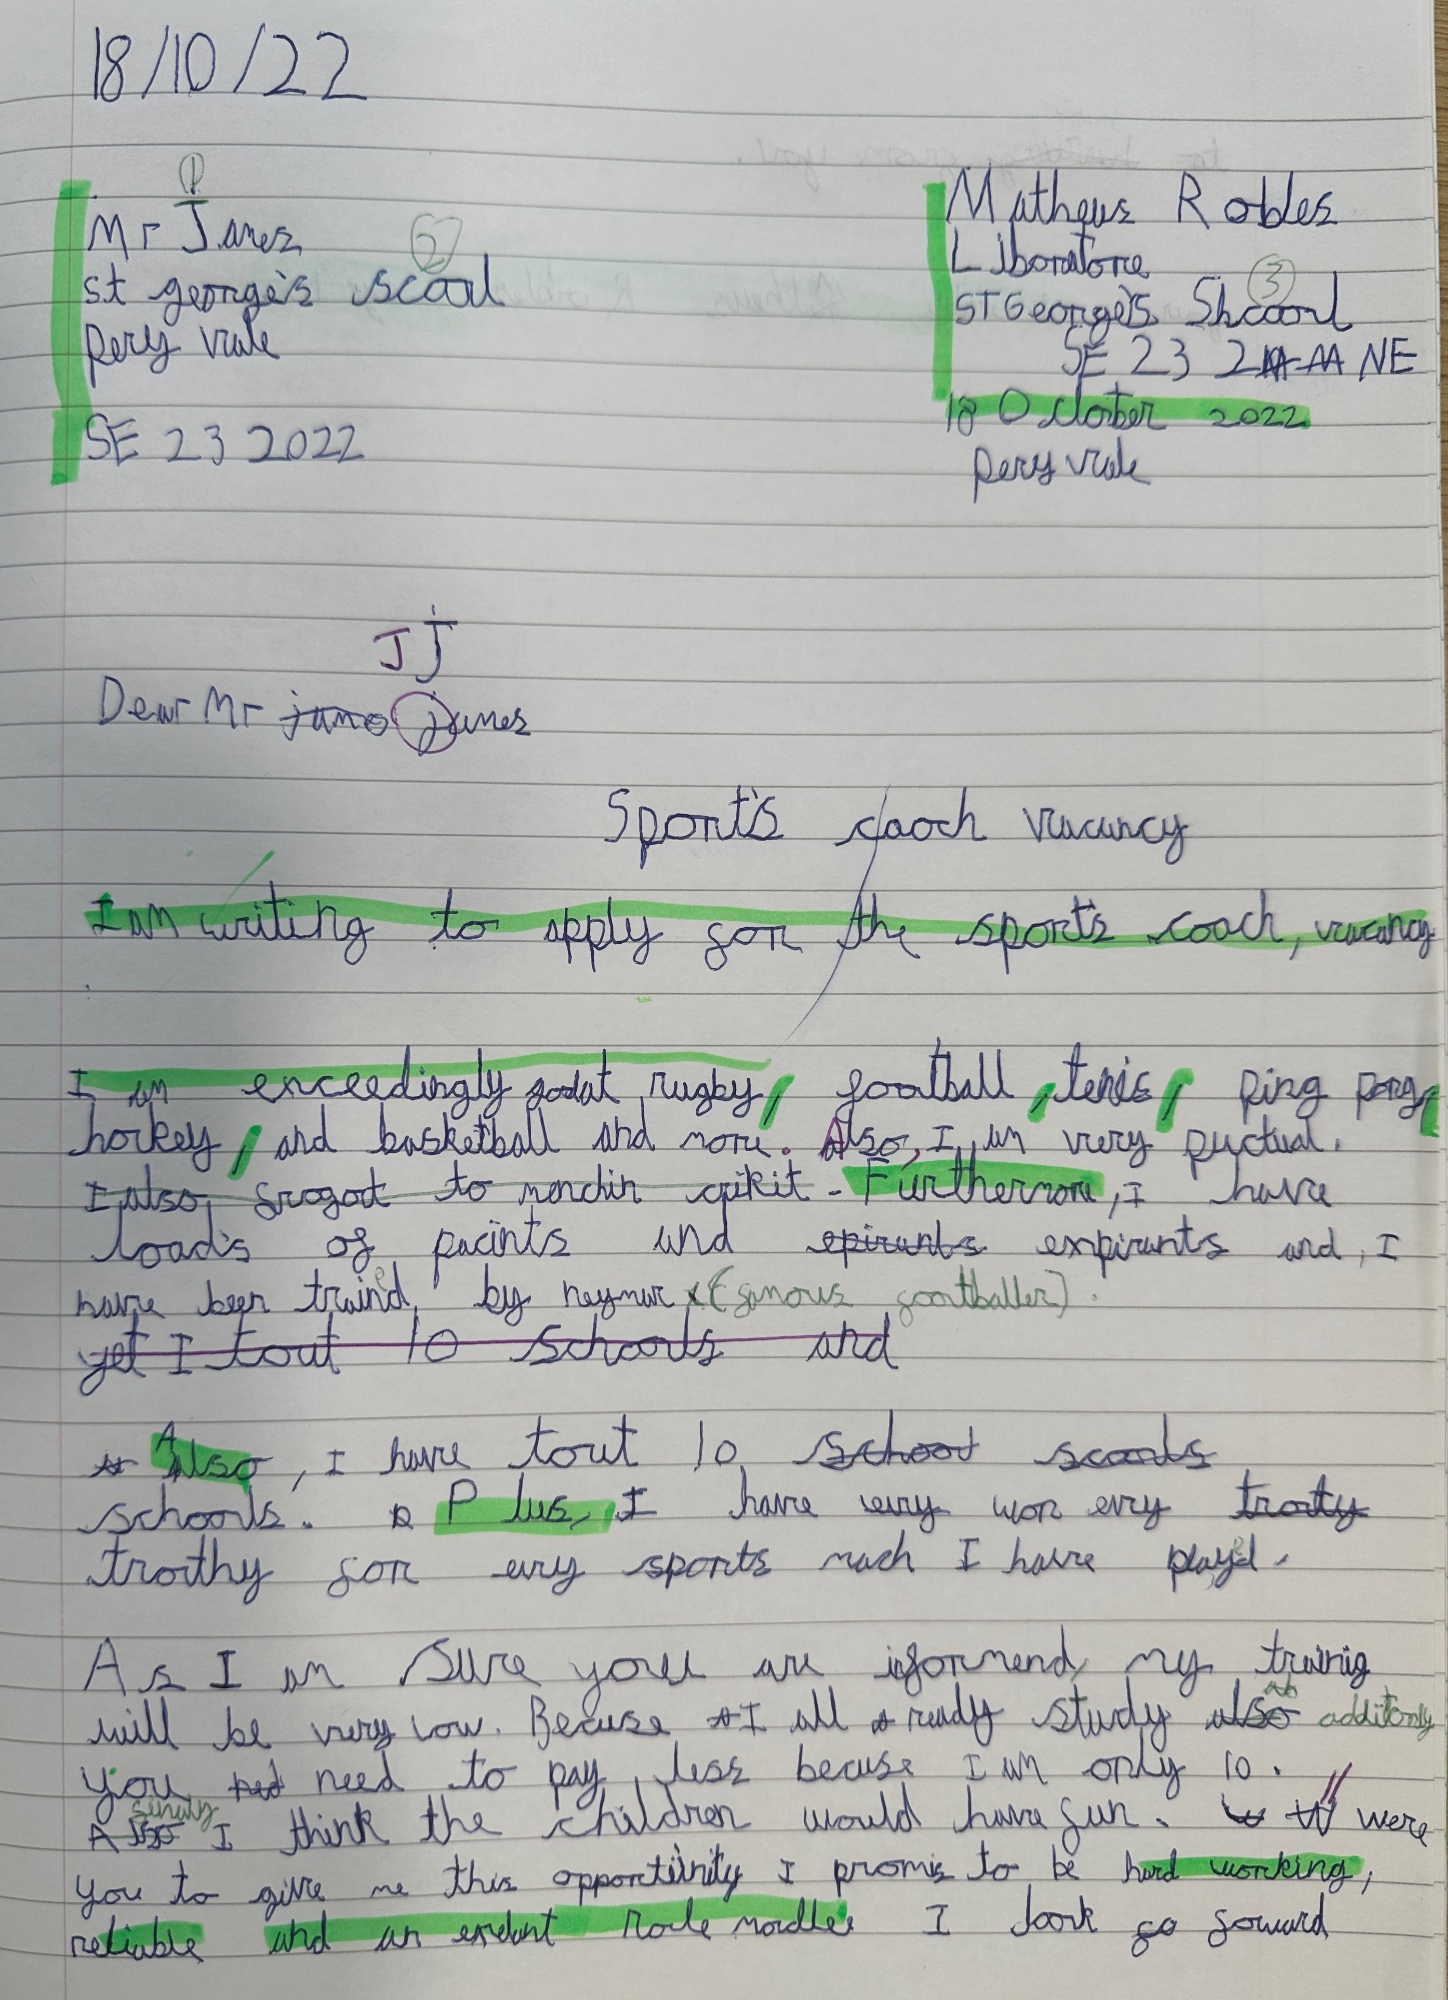 18/10/22
①
Mr Janes
②
st george's scool
pery vale
SE 23 2022
Matheus Robles
Liboratore
③
ST George's Shcool
SE 23 2 NE
18 October 2022
pery vale
J J
Dear Mr jame james
Sport's caoch vacancy
I am writing to apply for the sport's coach, vacancy
I am exceedingly godat rugby, football, tenis, ping pong,
horkey, and basketball and more. Also, I am very puctual.
I also, frogot to monchin crikit. Furthermore, I have
load's of pacints and epirants expirants and, I
have been trained, by neymar (famous footballer).
yet I tout 10 schools and
Also, I have tout 10 school scools
schools. Plus, I have evry won evry troty
trothy for evry sports mach I have played.
As I am sure youu are informend, my trainig
will be very low. Becuse I all ready study also additonly
you ned need to pay, less becuse I am only 10.
finaly
Also I think the children would have fun. // were
you to give me this opportiinity I promis to be hard working,
reliable and an exelant role modle. I look fo foward